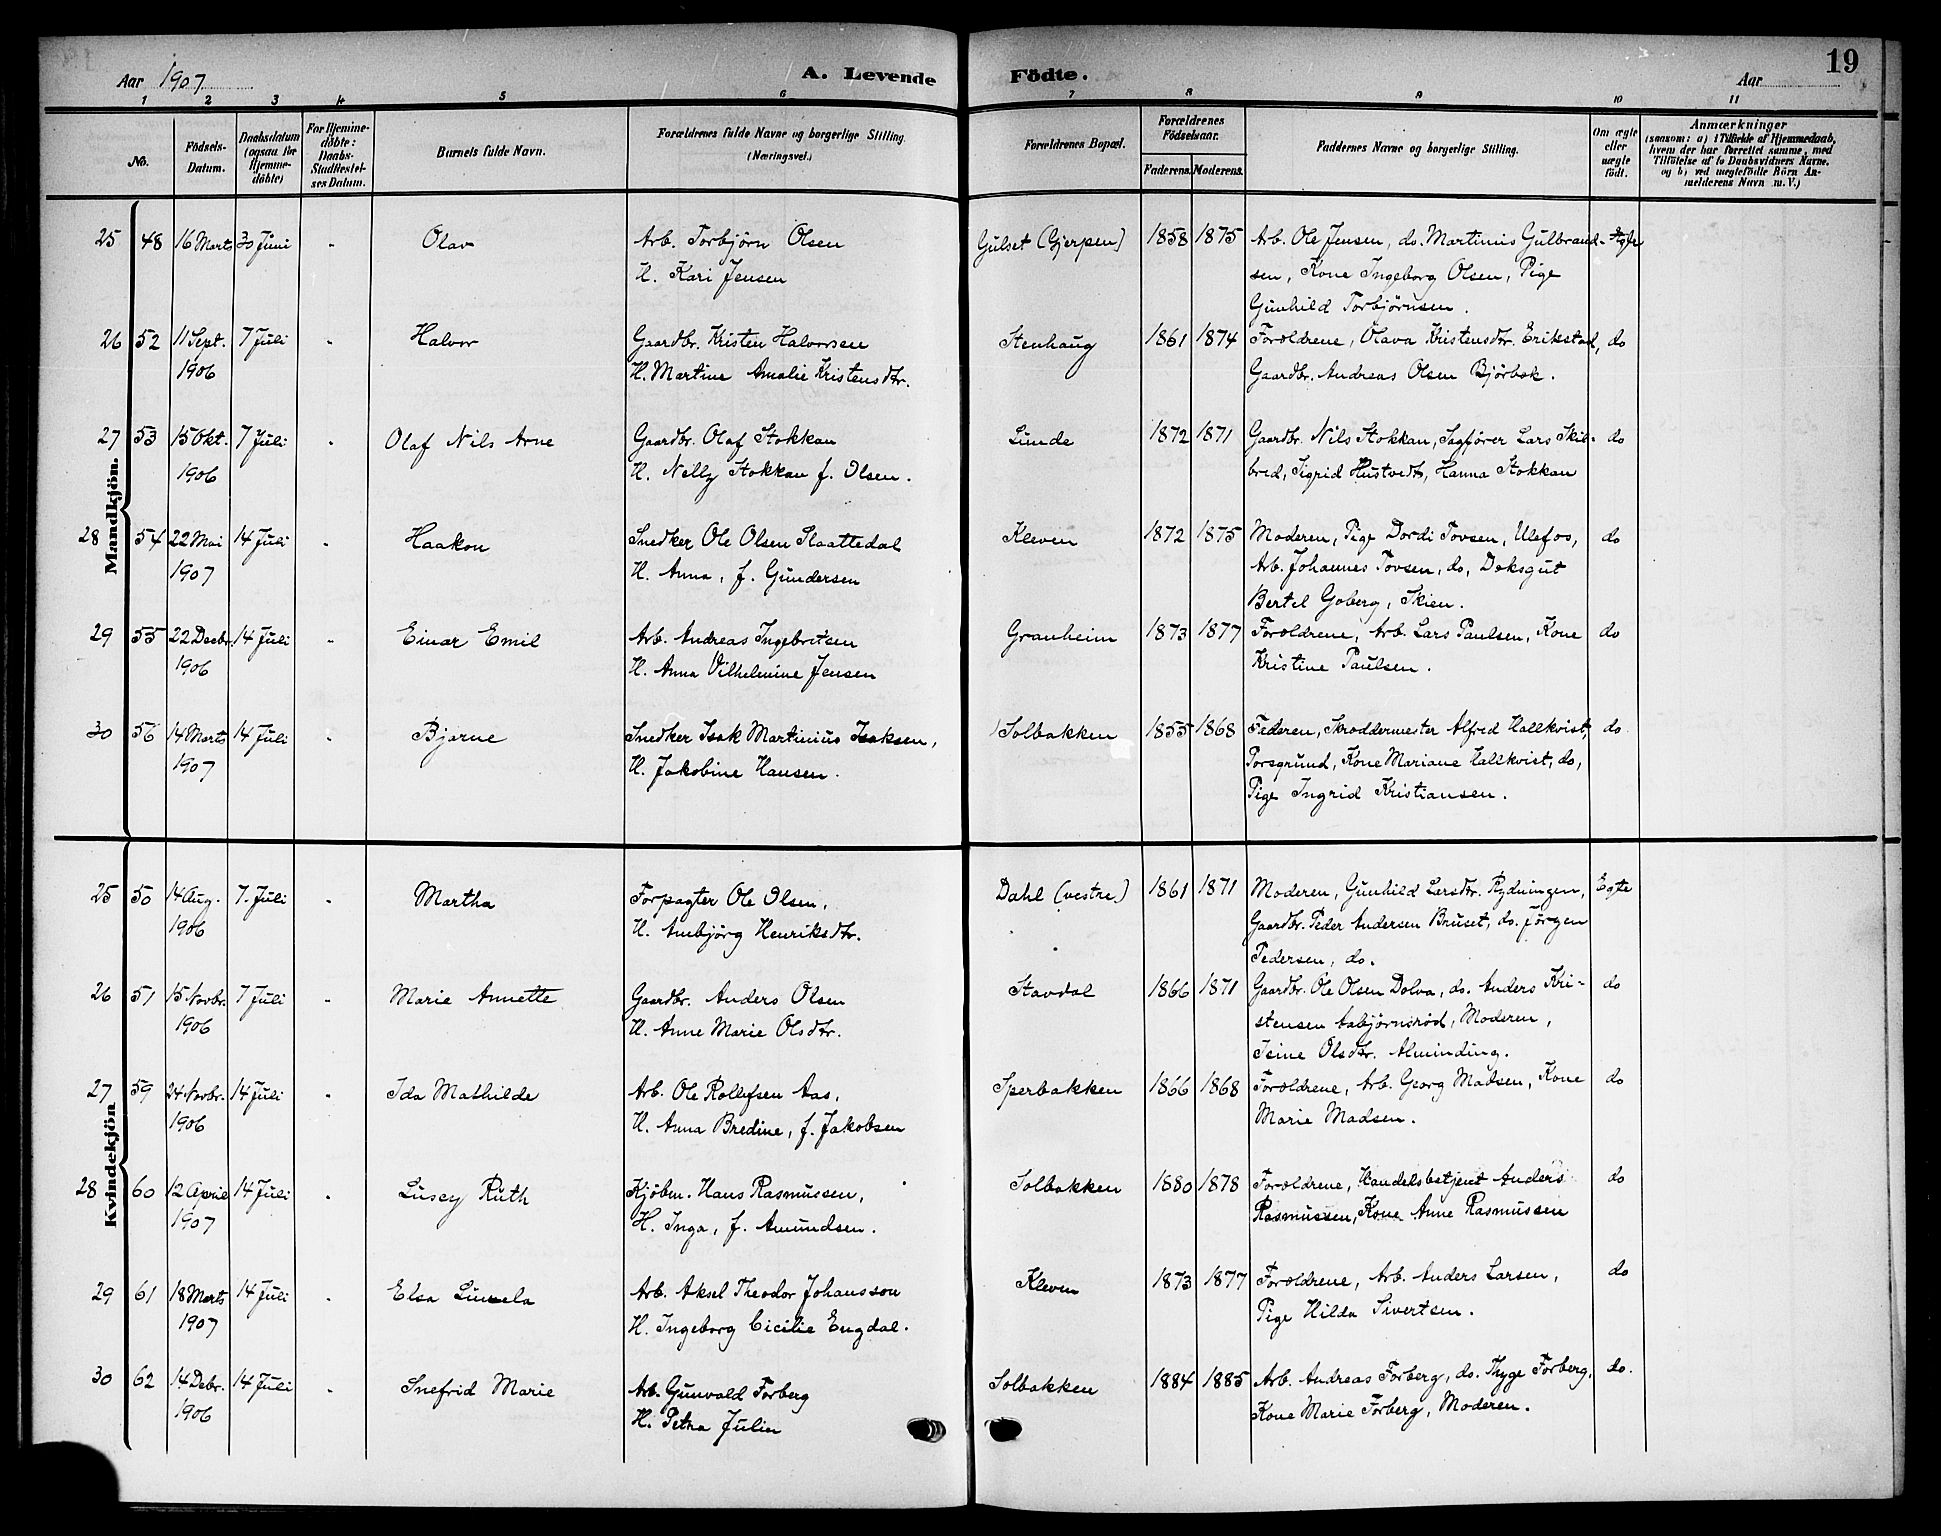 Aar 1907 A. Levende Födte. Aar 19
1 2 3 4 5 6 7 8 9 10 11
No. Födsels-Datum. Daabsdatum (ogsaa for Hjemme-döbte) For Hjemme-döbte: Daabs-Stadfæstel-ses Datum. Barnets fulde Navn. Forældrenes fulde Navne og borgerlige Stilling. (Næringsvei.) Forældrenes Bopæl. Forældrenes Födselsaar. Faderens. Moderens. Faddernes Navne og borgerlige Stilling. Om ægte eller uægte födt. Anmærkninger (saasom: a) i Tilfælde af Hjemmedaab, hvem der har forrettet samme, med Tilföielse af to Daabsvidners Navne, og b) ved uægtefödte Börn An-melderens Navn m. V.)
Mandkjön.
25 48 16 Marts 30 Juni " Olav Arb. Torbjörn Olsen Gulset (Gjerpen) 1858 1875 Arb. Ole Jensen, do. Martinus Gulbrand- Egte
H. Kari Jensen sen, Kone Ingeborg Olsen, Pige
Gunhild Torbjörnsen.
26 52 11 Sept. 7 Juli " Halvor Gaardbr. Kristen Halvorsen Stenhaug 1861 1874 Foroldrene, Olava Kristensdtr. Erikstad, do
1906 H. Martine Amalie Kristensdtr. Gaardbr. Andreas Olsen Björbæk.
27 53 15 Okt. 7 Juli " Olaf Nils Arne Gaardbr. Olaf Stokkan Lunde 1872 1871 Gaardbr. Nils Stokkan, Sagförer Lars Skil- do
1906 H. Nelly Stokkan f. Olsen. bred, Sigrid Hustvedt, Hanna Stokkan
28 54 22 Mai 14 Juli " Haakon Snedker Ole Olsen Slaattedal Kleven 1872 1875 Moderen, Pige Dordi Tovsen, Ulefos, do
1907 H. Anna, f. Gundersen Arb. Johannes Tovsen, do, Doksgut
Bertel Goberg, Skien.
29 55 22 Decbr. 14 Juli " Einar Emil Arb. Andreas Ingebretsen Granheim 1873 1877 Foroldrene, Arb. Lars Paulsen, Kone do
1906 H. Anna Vilhelmine Jensen Kristine Paulsen.
30 56 14 Marts 14 Juli " Bjarne Snedker Isak Martinius Isaksen, Solbakken 1855 1868 Federen, Skroddermester Alfred Hallkvist, do
1907 H. Jakobine Hansen. Porsgrund, Kone Mariane Hallkvist, do,
Pige Ingrid Kristiansen.
Kvindekjön
25 50 14 Aug. 7. Juli " Martha Forpagter Ole Olsen, Dahl (vestre) 1861 1871 Moderen, Gunhild Larsdtr. Rydningen, Egte
1906 H. Anbjörg Henriksdtr. Gaardbr. Peder Andersen Bruset, do. Jörgen
Pedersen, do.
26 51 15 Novbr. 7 Juli " Marie Annette Gaardbr. Anders Olsen Stavdal 1866 1871 Gaardbr. Ole Olsen Dolva, do. Anders Kri- do
1906 H. Anne Marie Olsdtr. stensen Aabjörnsröd, Moderen,
Isine Olsdtr. Alminding.
27 59 24 Novbr. 14 Juli " Ida Mathilde Arb. Ole Rollefsen Aas, Sperbakken 1866 1868 Foroldrene, Arb. Georg Madsen, Kone do
1906 H. Anna Bredine, f. Jakobsen Marie Madsen.
28 60 12 April 14 Juli " Lusey Ruth Kjöbm. Hans Rasmussen, Solbakken 1880 1878 Foroldrene, Handelsbetjent Anders do
1907 H. Inga, f. Amundsen. Rasmussen, Kone Anne Rasmussen
29 61 18 Marts 14 Juli " Elsa Arb. Aksel Theodor Johansson Kleven 1873 1877 Foroldrene, Arb. Anders Larsen, do
1907 H. Ingeborg Cicilie Engdal. Pige Hilda Sivertsen.
30 62 14 Debr. 14 Juli " Snefrid Marie Arb. Gunvald Forberg Solbakken 1884 1885 Arb. Andreas Forberg, do. Thyge Forberg, do.
1906 H. Petra Julin Kone Marie Forberg, Moderen.